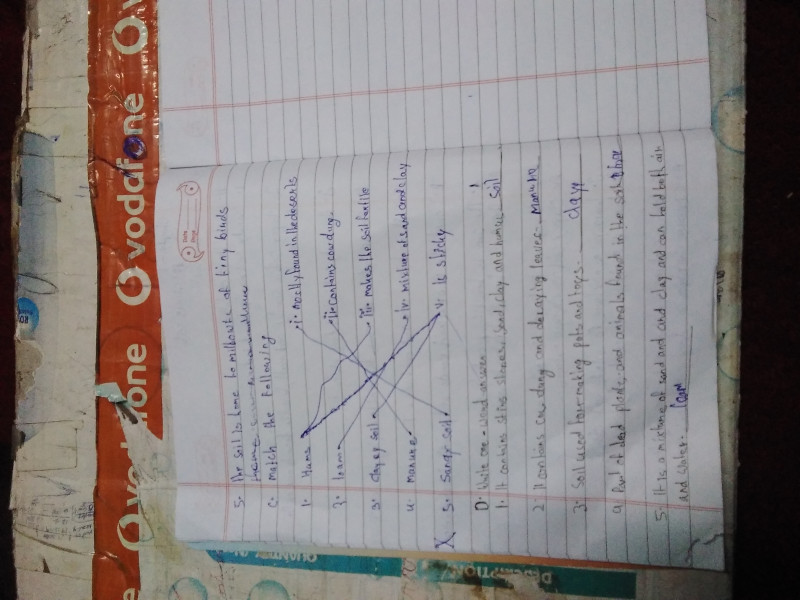 5. The soil is home to millions of tiny birds
C. Match the Following
1. Hums i. mostly found in the deserts
2. loam ii. contains cow dung.
3. clayey soil iii. makes the soil fertile
4. manure iv. mixture of sand and clay
5. Sandy soil v. Is sticky
D. Write one-word answer
1. It contains stones, sand, clay and humus. soil
2. It contains cow dung and decaying leaves. manure
3. Soil used for making pots and toys. clay
4. Part of dead plants and animals found in the soil
5. It is a mixture of sand and and clay and can hold both air
and water. loam
vodafone
vodafone